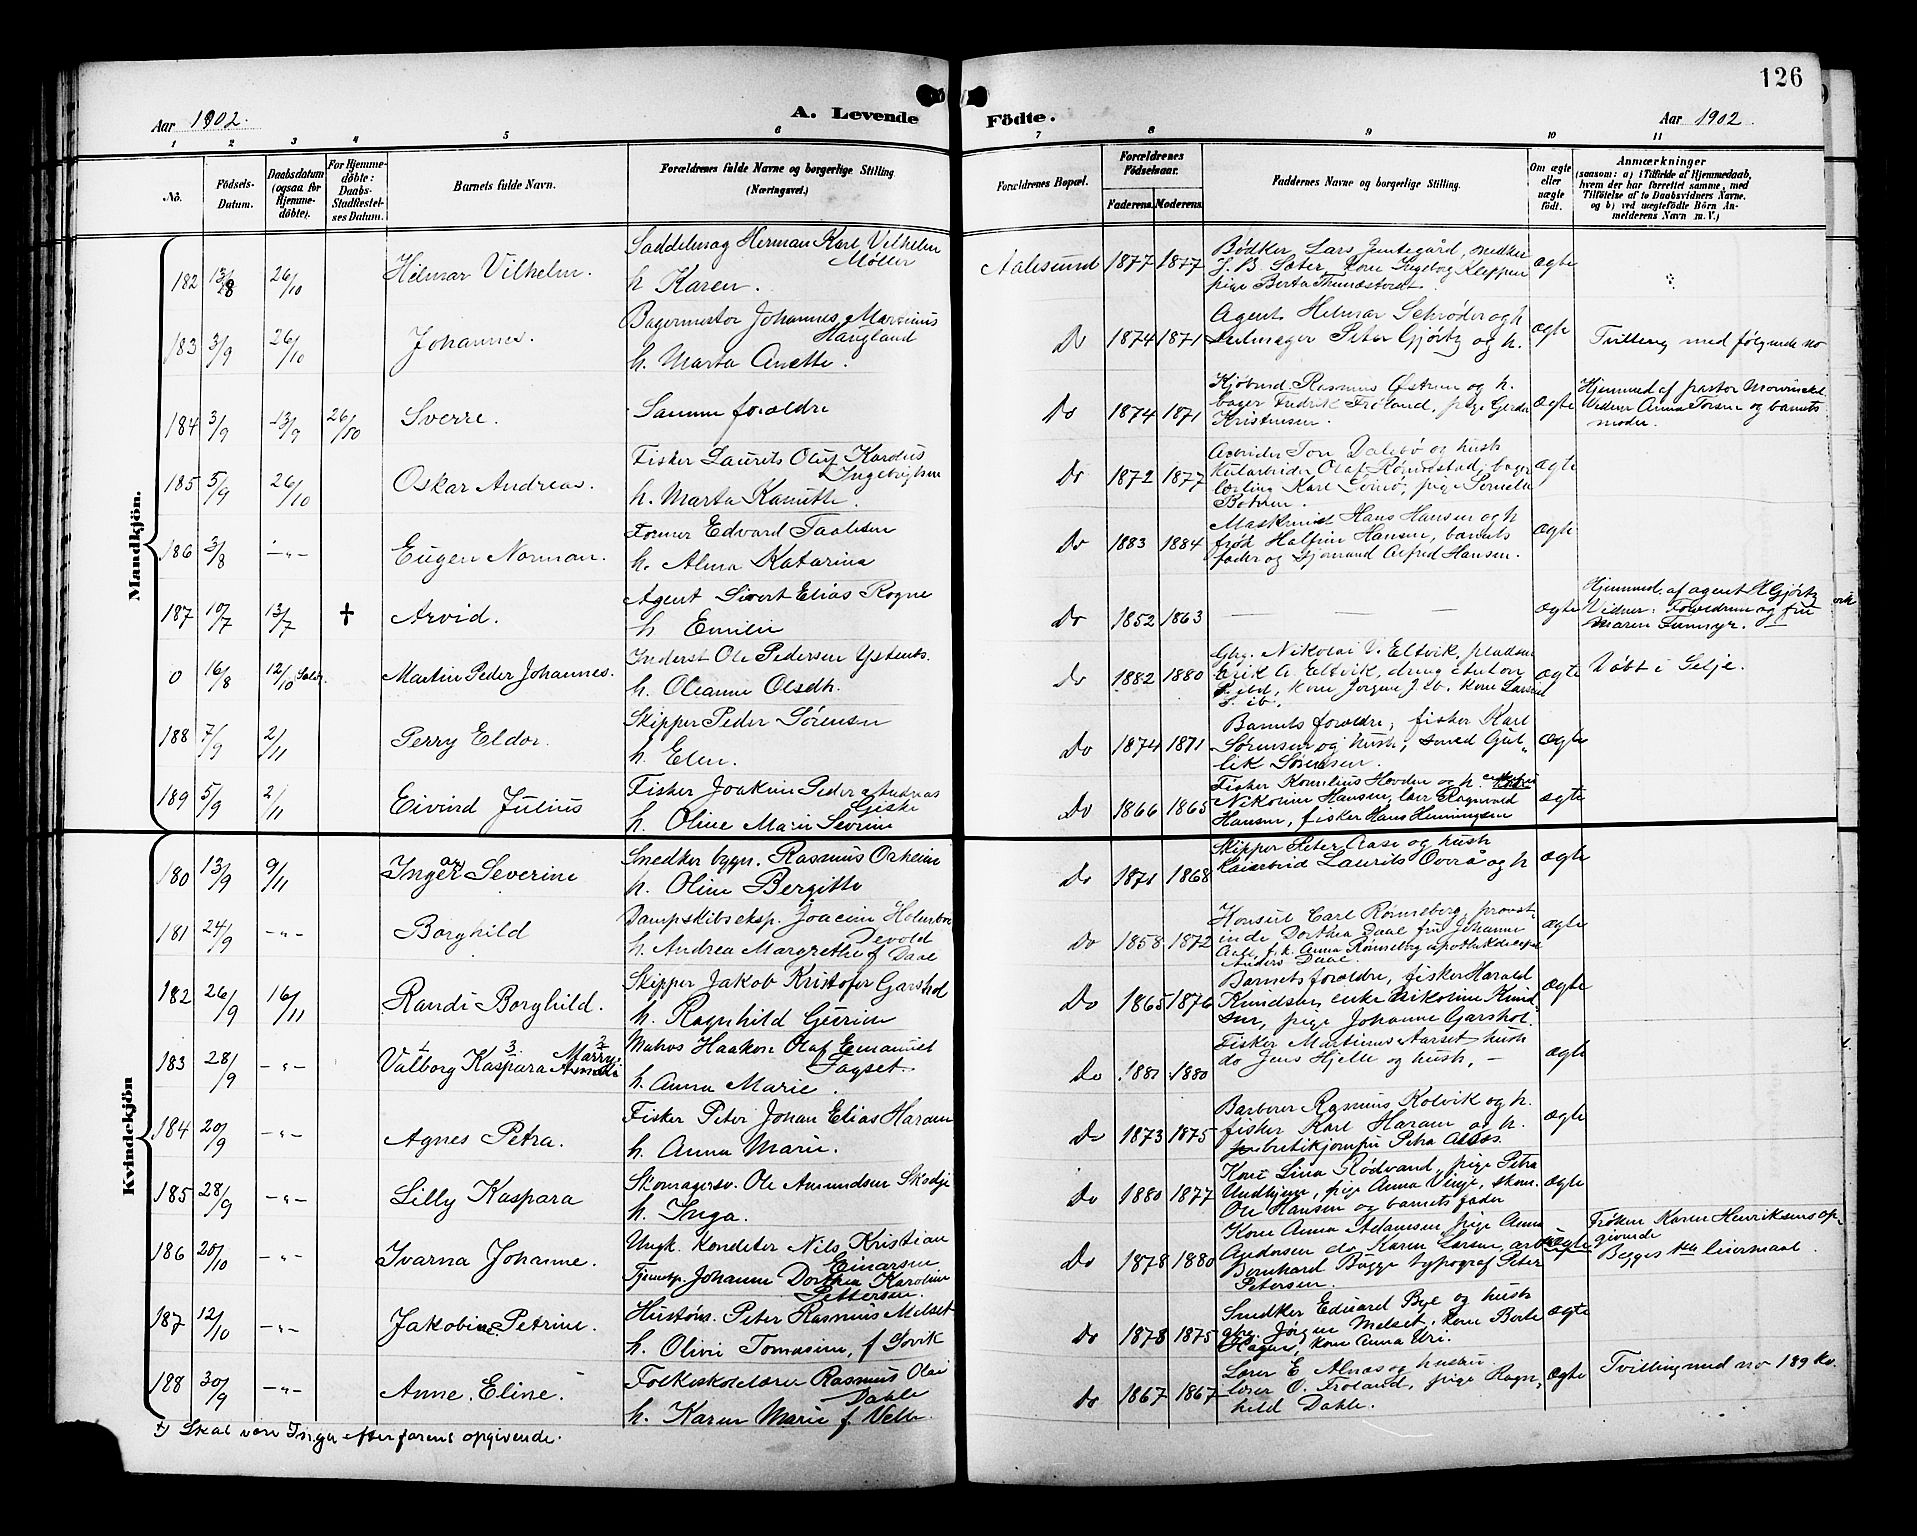 126
Aar 1902.
A. Levende Födte.
Aar 1902.
1 2 3 4 5 6 7 8 9 10 11
No.
Födsels-Datum.
Daabsdatum (ogsaa for Hjemmedöbte).
For Hjemmedöbte: Daabs-Stadfæstelses Datum.
Barnets fulde Navn.
Forældrenes fulde Navne og borgerlige Stilling (Næringsvei.)
Forældrenes Bopæl.
Forældrenes Födselsaar.
Faderens. Moderens.
Faddernes Navne og borgerlige Stilling.
Om ægte eller uægte födt.
Anmærkninger
(saasom: a) i Tilfælde af Hjemmedaab,
hvem der har forrettet samme, med
Tilföielse af to Daabsvidners Navne.
og b) ved uægtefödte Börn An-
melderens Navn m. V.)
Mandkjön.
182 13/8 26/10 Hilmar Vilhelm. Saddelmag Herman Karl Vilhelm Møller
h. Karen.
Aalesund 1877 1877 Bødker Lars snedker
J. B. Sæter, kone Ingeborg Kleppen
pige Berta
ægte
183 3/9 26/10 Johannes. Bagermester Johannes Martinus Haugland
h. Marta Anette.
Do 1874 1871 Agent Helmar Schrøder og h
Peter Gjørtz og h.
ægte Tvilling med følgende no
184 3/9 13/9 26/10 Sverre. Samme forældre
Do 1874 1871 Kjøbmd. Rasmus og h.
bager Fredrik Frøland, pige Gerda
Kristensen.
ægte Hjemmed af pastor Mowinckel
Vidner Anna og barnets
moder.
185 5/9 26/10 Oskar Andreas. Fisker Laurits Oluf Kardus Ingebrigtsen
h. Marta
Do 1872 1877 Arbeider Tore Dalebø og hustr
Olaf Rønnestad, bager
lærling Karl pige
ægte
186 3/8 -"- Eugen Norman. Former Edvard Paulsen
h. Alma Katarina
Do 1883 1884 Maskinist Hans Hansen og h
frøk Halfrid Hansen, barnets
fader og Alfred Hansen.
ægte
187 10/7 13/7 ✝ Arvid. Agent Sivert Elias Rogne
h Emilie
Do 1852 1863 — — — ægte Hjemmed. af agent Gjørtz
Vidner: og fru
Maren
0 16/8 12/10 Selje. Martin Peder Johannes. Inderst Ole Pedersen
h. Oleanne Olsdh.
Do 1882 1880 Gbr. Nikolai V. Eltvik,
Erik A. Eltvik, dreng
kone Jorgine kone
ægte Døbt i Selje.
188 7/9 2/11 Perry Eldor. Skipper Peder Sørensen
h. Elen.
Do 1874 1871 Barnets forældre, fisker Karl
Sørensen og hustr, smed Gul-
lik Sørensen.
ægte
189 5/9 2/11 Eivind Julius Fisker Joakim Peder Andreas Giske
h. Oline Marie Severine
Do 1866 1865 Fisker Kornelius Hovden og h.
Nikoline Hansen, lær Ragnvald
Hansen, fisker Hans Henningsen
ægte
Kvindekjön
180 13/9 9/11 Inger Severine Snedker bygn. Rasmus Osheim
h. Oline Bergitte
Do 1871 1868 Skipper Peter Aase og hustr
Laurits Overå og h
ægte
181 24/9 -"- Borghild Dampskibseksp. Joacim Holmboe Devold
h. Andrea Margrethe f Daae
Do 1858 1872 Konsul Carl Rønneberg, provst-
inde Dorthea Daae fru Johanne
Aase, f.k. Anna Rønneberg
Anders Daae
ægte
182 26/9 16/11 Randi Borghild. Skipper Jakob Kristofer Garshol
h. Ragnhild Gurine
Do 1865 1876 Barnets forældre, fisker Harald
Knudsen, enke Nikoline Knud-
sen, pige Johanne Garshol.
ægte
183 28/9 -"- Valborg Kaspara Marry Matros Haakon Olaf Emanuel Fagset.
h. Anna Marie
Do 1881 1880 Fisker Martinus Aarset hustr
do Jens Hjelle og hustr, -
ægte
184 20/9 -"- Agnes Petra. Fisker Peter Johan Elias Haram
h. Anna Marie.
Do 1873 1875 Barberer Rasmus Kolvik og h.
fisker Karl Haram og h.
butikjomfru Petra
ægte
185 28/9 -"- Lilly Kaspara Skomagersv. Ole Amundsen Skodje
h. Inga.
Do 1880 1877 Kone Lina Rødvand, pige Petra
pige Anna Vinje, skom.
Ole Hansen og barnets fader
ægte
186 20/10 -"- Ivarna Johanne. Ungk. Konditor Nils Kristian Einarsen
Tjenestp. Johanne Dorthea Karoline Pettersen.
Do 1878 1880 Kone Anna Adamsen pige Anna
Andersen do Karen Larsen, arb
Bernhard Bugge typograf Peter
Petersen.
uægte Frøken Karen Henriksens op-
givende
Begges 1ste leiermaal.
187 12/10 -"- Jakobine Petrine. Hustøm. Peter Rasmus Melset
h. Olivie Tomasine, f Sovik
Do 1878 1875 Snedker Edvard Bye og hustr
gbr. Jørgen Melset, kone Berte
Hagen, kone Anna Uri.
ægte
188 30/9 -"- Anne Eline. Folkeskolelærer Rasmus Olai Dahle
h. Karen Marie f. Velle.
Do 1867 1867 Lærer E. Alnæs og hustru
lærer O. Frøland, pige Ragn-
hild Dahle.
ægte Tvilling med no 189 kv.
+) Skal være Inga efter farens opgivende.